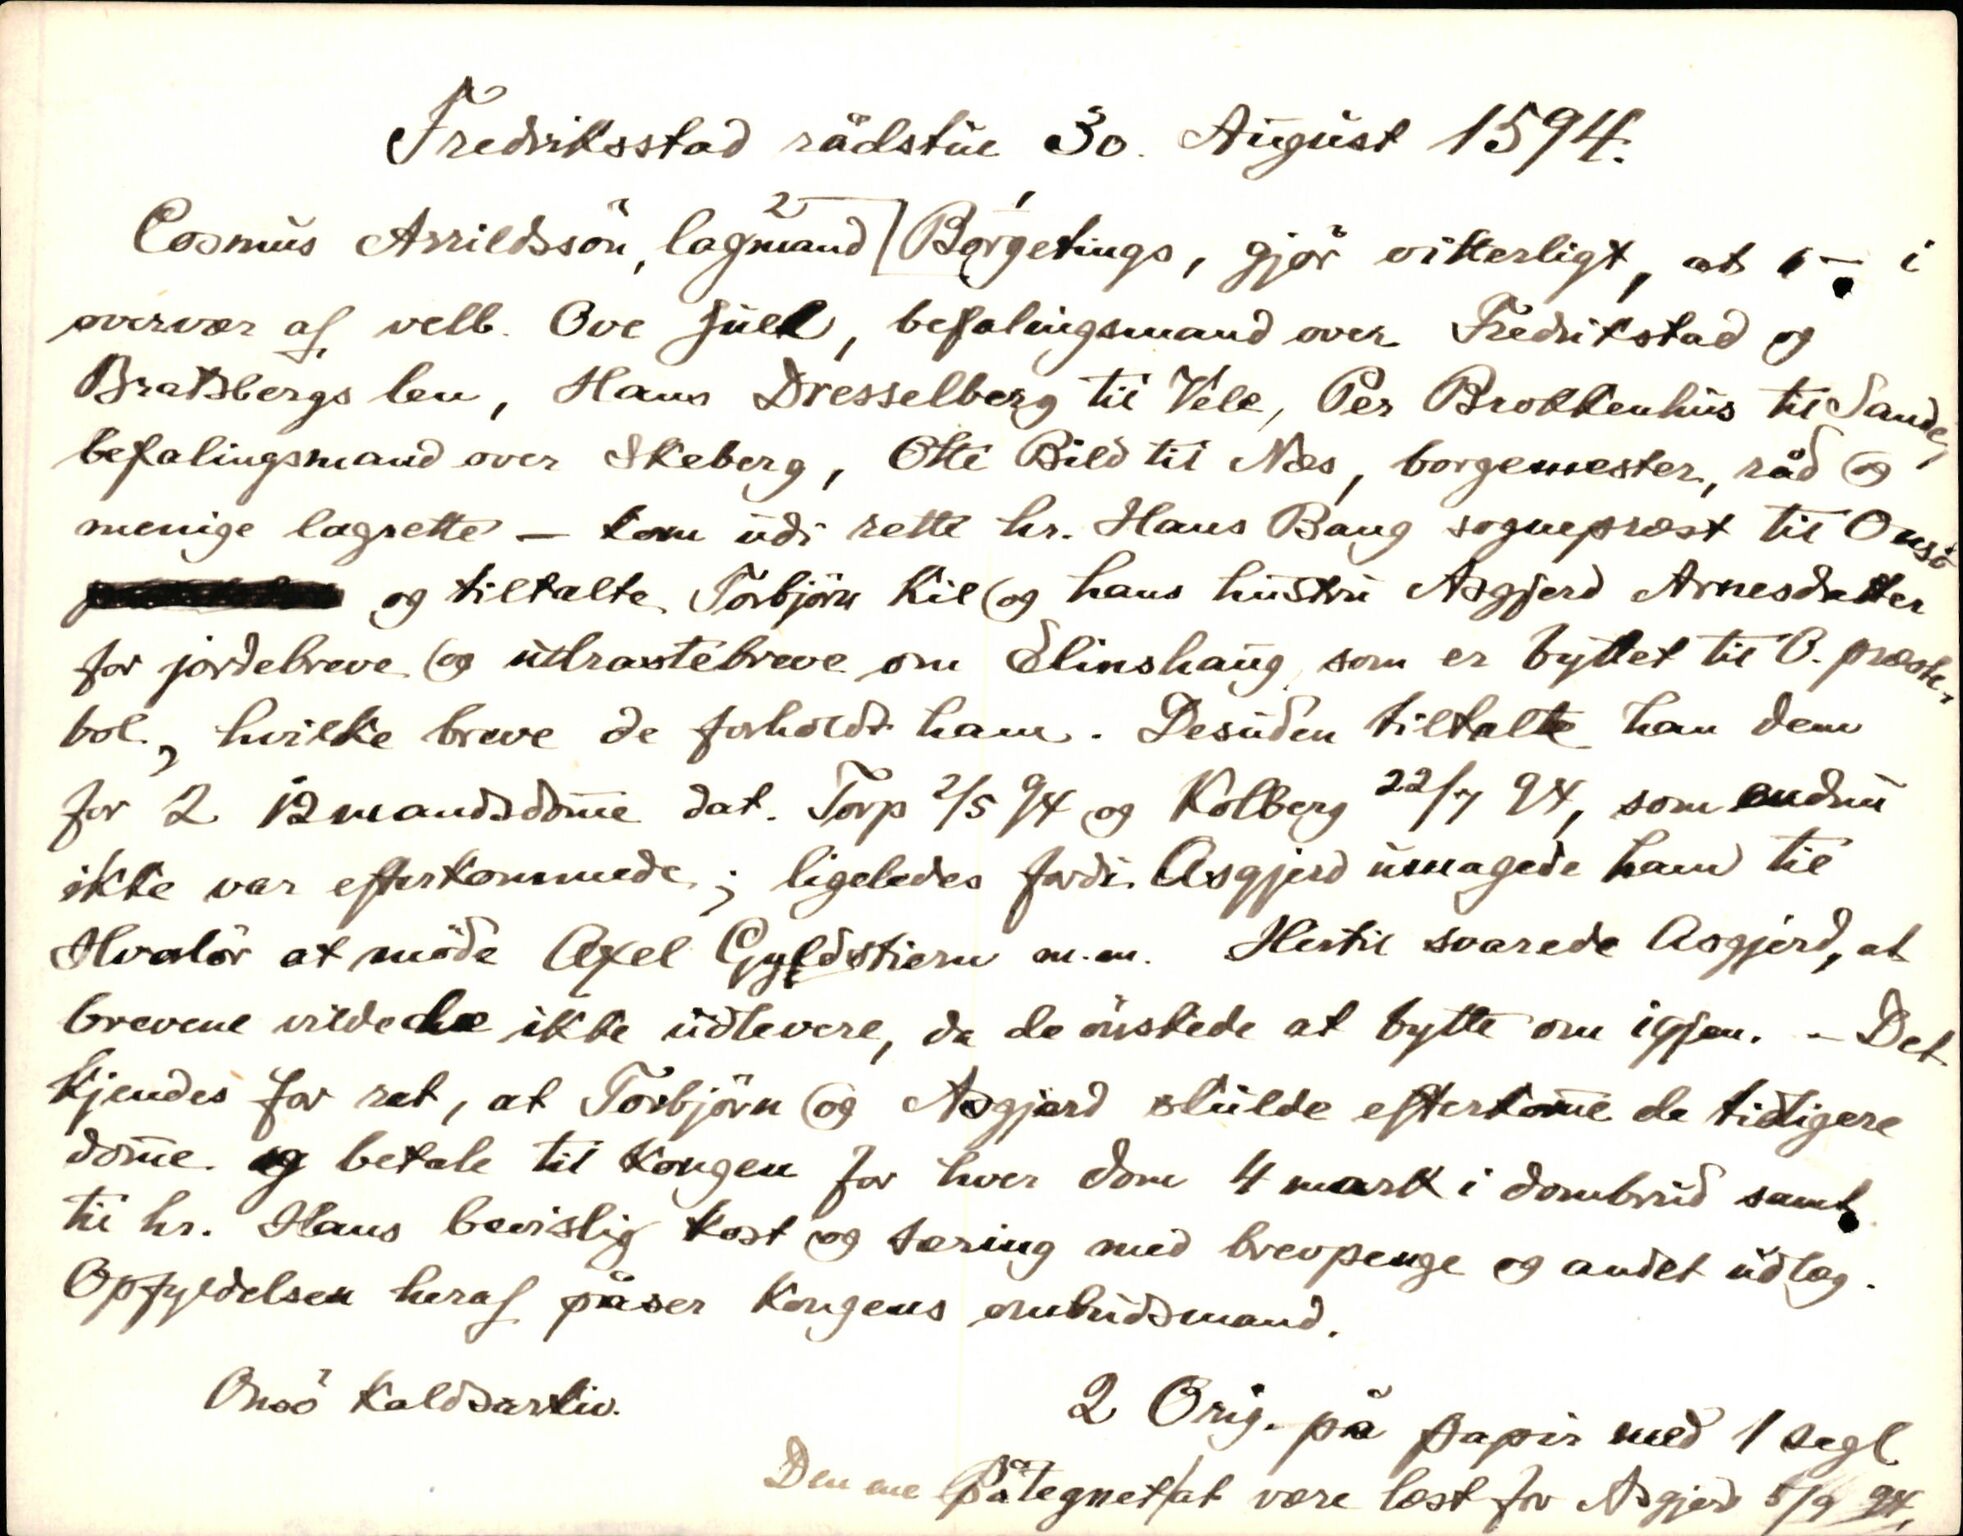 Fredriksstad rådstue 30. August 1594.
Cosmus Arrildssön, lagmand Borgetings, gjör vitterligt, at – i
overvær af velb. Ove Juel, befalingsmand over Fredrikstad og
Bratsbergs len, Hans Dresselberg til Vele, Per Brokkenhus til Sande,
befalingsmand over Skeberg, Otte Bild til Næs, borgemester, råd og
menige lagrette – kom udi rette hr. Hans Bang sogneprest til Onsö
og tiltalte Torbjörn Kil og hans hustru Asgjerd Arnesdatter
for jordebreve og udrastebreve om Elinshaug som er byttet til O. præste-
bol, hvilke breve de forholdt ham. Desuden tiltalte han dem
for 2 12 mandsdom̅e dat. Torp 2/5 94 og Kolberg 22/7 94, som endnu
ikke var efterkommede; ligeledes fordi Asgjerd umagede ham til
Hvalör at möde Axel Gyldstiern m.m. Hertil svarede Asgjerd, at
brevene vilde de ikke udlevere, da de önskede at bytte om igjen. – Det
kjendes for ret, at Torbjörn og Asgjerd skulde efterkom̅e de tidligere
dom̅e og betale til Kongen for hver dom 4 mark i dombrud samt
til hr. Hans bevislig kost og tæring med brevpenge og andet udlag.
Opfyldelsen heraf påser Kongens ombudsmand.
Onsö Kaldsarkiv.
2 Orig. på papir med 1 segl
Den ene påtegnet at være læst for Asgjerd 5/9 94.